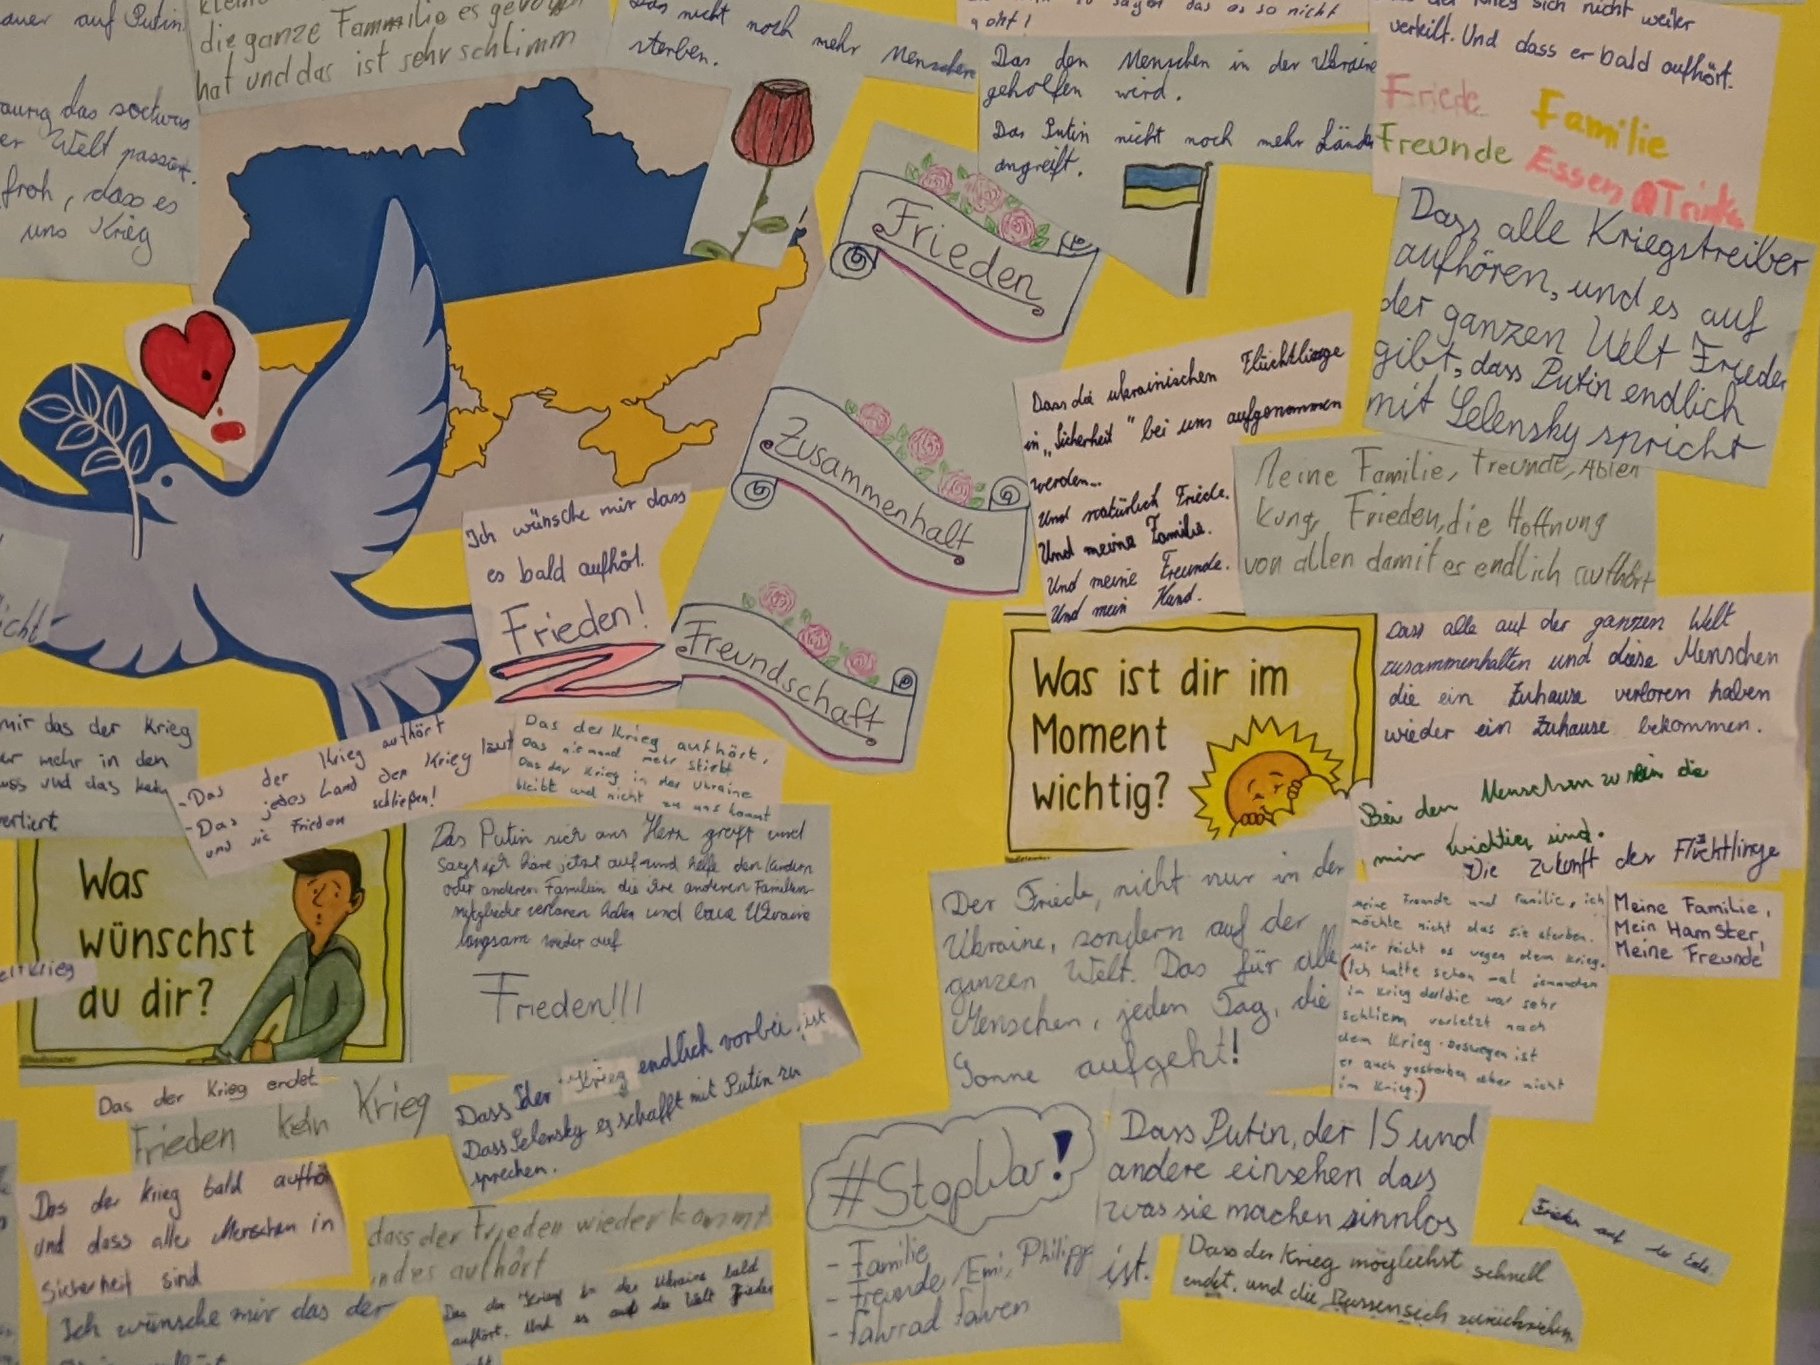 auer auf Putin
die ganze Fammilie es gevo
hat und das ist sehr schlimm
aurig das sochwas
er Welt passiert.
froh, dass es
uns Krieg
Das nicht noch mehr Menschen
sterben.
Das den Menschen in der Ukraine
geholfen wird.
Das Putin nicht noch mehr Lände
angreift.
sich nicht weiter
verteilt. Und dass er bald aufhört.
Friede
Familie
Freunde
Essen
Dass alle Kriegstreiber
aufhören, und es auf
der ganzen Welt Frieden
gibt, dass Putin endlich
mit Selensky spricht
Frieden
Zusammenhalt
Freundschaft
Dass die ukrainischen Flüchtlinge
in "Sicherheit" bei uns aufgenommen
werden...
Und natürlich Friede.
Und meine Familie.
Und meine Freunde.
Und mein Hund.
Meine Familie, Freunde, Ablen
kung, Frieden, die Hoffnung
von allen damit es endlich aufhört
Ich wünsche mir dass
es bald aufhört.
Frieden!
Was ist dir im
Moment
wichtig?
Dass alle auf der ganzen Welt
zusammenhalten und diese Menschen
die ein Zuhause verloren haben
wieder ein Zuhause bekommen.
Bei den Menschen zu sein die
mir wichtig sind.
Die Zukunft der Flüchtlinge
mir das der Krieg
er mehr in den
uss und das kein
verliert.
-Das der Krieg aufhört
-Das jedes Land den Krieg
und sie Frieden schließen!
Das der Krieg aufhört,
Das niemand mehr stirbt
Das der Krieg in der Ukraine
bleibt und nicht zu uns kommt
Was
wünschst
du dir?
Das Putin sich ans Herz greift und
sagt ich höre jetzt auf und helfe den Kindern
oder anderen Familien die ihre anderen Familien-
mitglieder verloren haben und baue Ukraine
langsam wieder auf
Frieden!!!
Der Friede, nicht nur in der
Ukraine, sondern auf der
ganzen Welt. Das für alle
Menschen, jeden Tag, die
Sonne aufgeht!
meine Freunde und Familie, ich
möchte nicht das sie sterben.
mir reicht es wegen dem Krieg.
(Ich hatte schon mal jemanden
im Krieg der/die war sehr
schlimm verletzt nach
dem Krieg. Deswegen ist
er auch gestorben aber nicht
im Krieg.)
Meine Familie,
Mein Hamster,
Meine Freunde
Das der Krieg endet.
Frieden kein Krieg
Dass der Krieg endlich vorbei ist
Dass Selensky es schafft mit Putin zu
sprechen.
Das der Krieg bald aufhö
und dass alle Menschen in
Sicherheit sind
dass der Frieden wieder kommt
und es aufhört
Das der Krieg in der Ukraine bald
aufhört. Und es auf der Welt Frieden
Ich wünsche mir das der
#StopWar!
- Familie
- Freunde, Emi, Philipp
- Fahrad fahren
Dass Putin, der IS und
andere einsehen dass
was sie machen sinnlos
ist.
Dass der Krieg möglichst schnell
endet, und die Russen sich zurückziehen
Frieden auf der Erde.